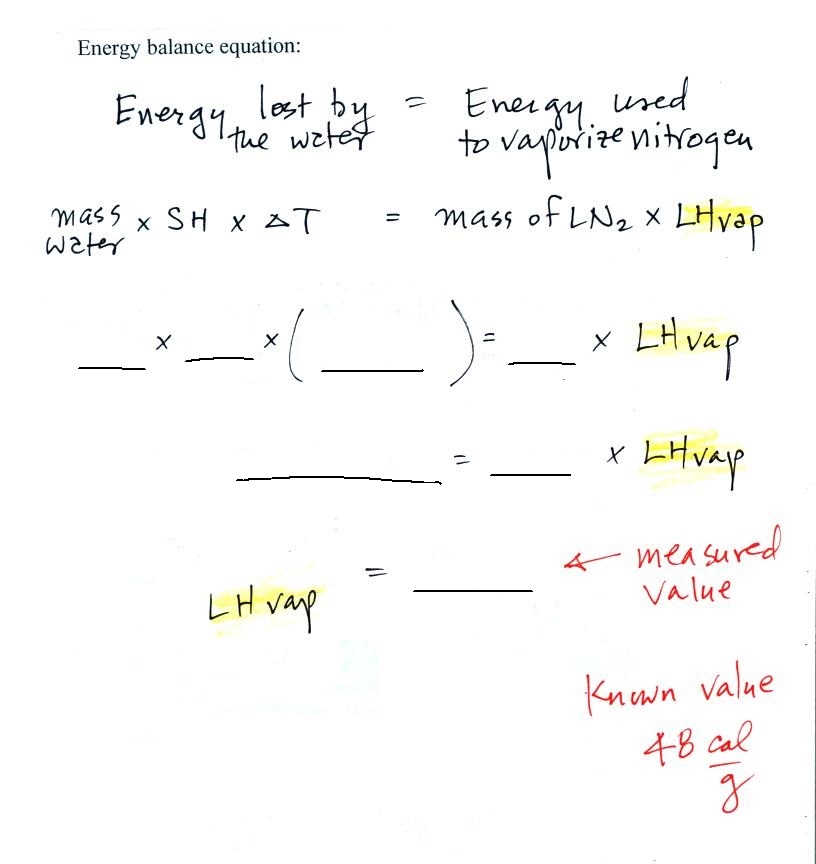 Energy balance equation:
Energy lost by the water = Energy used to vaporize nitrogen
mass water x SH x ΔT = mass of LN₂ x LHvap
___ x ___ x ( ___ ) = ___ x LHvap
___ = ___ x LHvap
LHvap = ___ ← measured value
Known value
48 cal/g